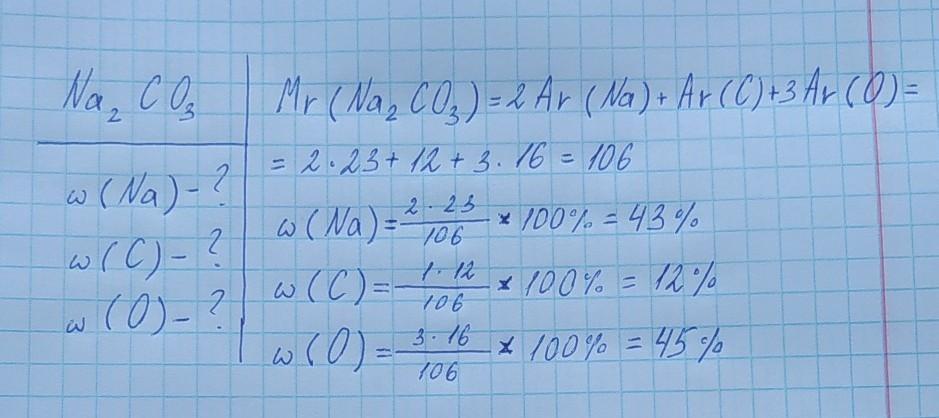 Na₂CO₃
ω(Na)-?
ω(C)-?
ω(O)-?
Mr(Na₂CO₃)=2Ar(Na)+Ar(C)+3Ar(O)=
= 2·23+12+3·16=106
ω(Na)=2·23/106*100%=43%
ω(C)=1·12/106*100%=12%
ω(O)=3·16/106*100%=45%